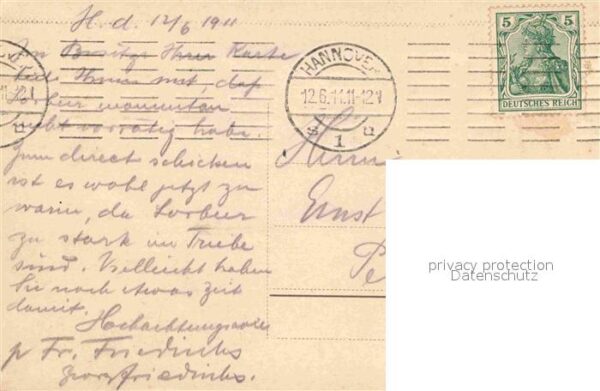 H. d. 12/6 1911
Im Besitze Ihrer Karte
teile Ihnen mit, daß
momentan
nicht vorrätig habe.
Zum direct schicken
ist es wohl jetzt zu
warm, da Lorbeer
zu stark im Triebe
sind. Vielleicht haben
Sie noch etwas Zeit
damit.
Hochachtungsvoll
p Fr. Friedrichs
Friedrichs.
HANNOVER
12.6.11.11-12V
1
5 5
DEUTSCHES REICH
Herrn
Ernst
Pe
privacy protection
Datenschutz